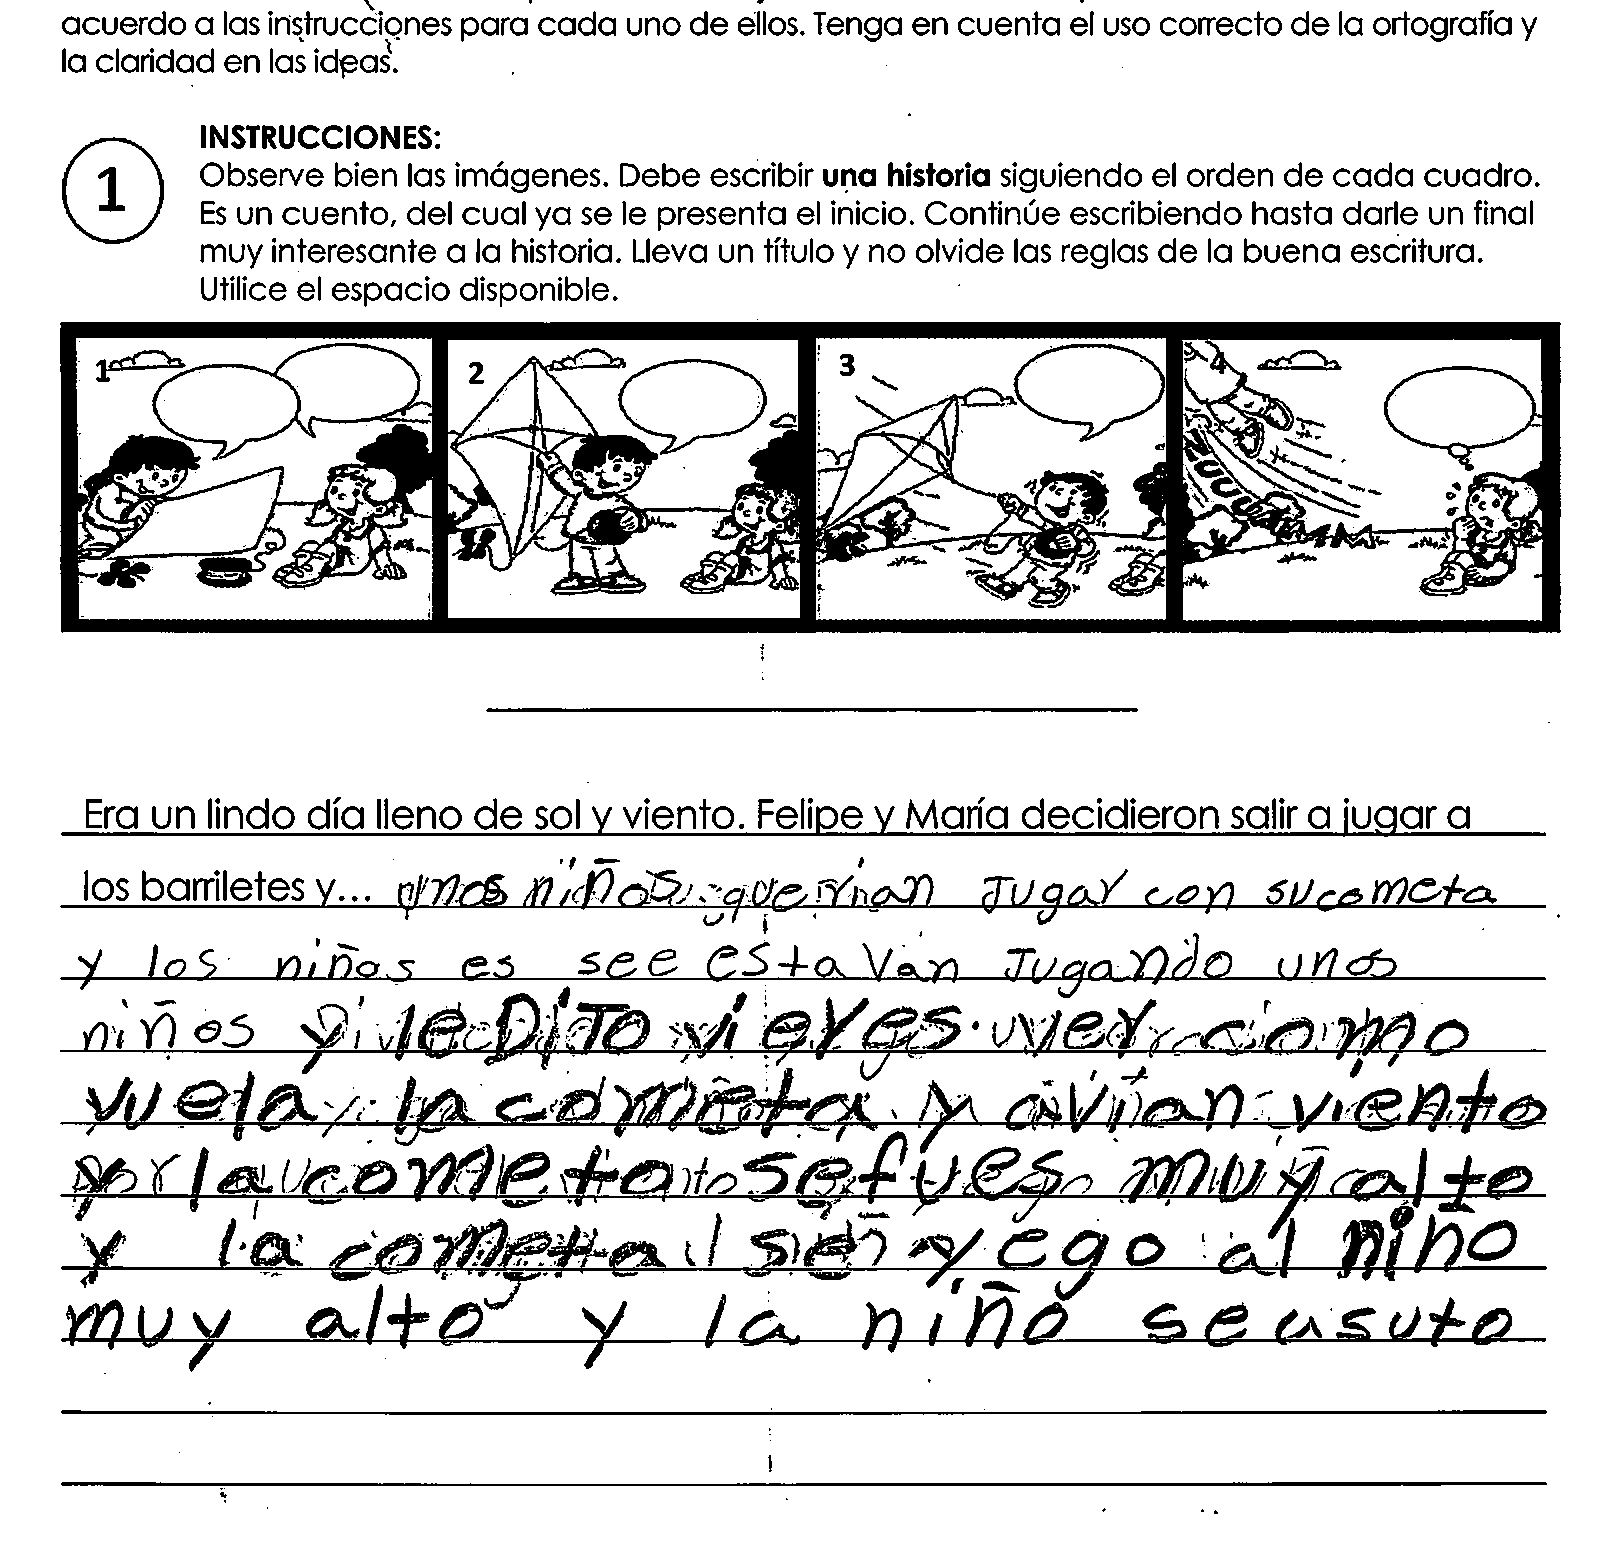 acuerdo a las instrucciones para cada uno de ellos. Tenga en cuenta el uso correcto de la ortografía y
la claridad en las ideas.
INSTRUCCIONES:
1
Observe bien las imágenes. Debe escribir una historia siguiendo el orden de cada cuadro.
Es un cuento, del cual ya se le presenta el inicio. Continúe escribiendo hasta darle un final
muy interesante a la historia. Lleva un título y no olvide las reglas de la buena escritura.
Utilice el espacio disponible.
1 2 3 4
Era un lindo día lleno de sol y viento. Felipe y María decidieron salir a jugar a
los barriletes y... unos niños querian Jugar con su cometa
y los niños es see estavan Jugando unos
niños y le DiTo vieres ver como
vuela la cometa y avian viento
y la cometa se fues muy alto
y la cometa se yego al niño
muy alto y la niño seasuto